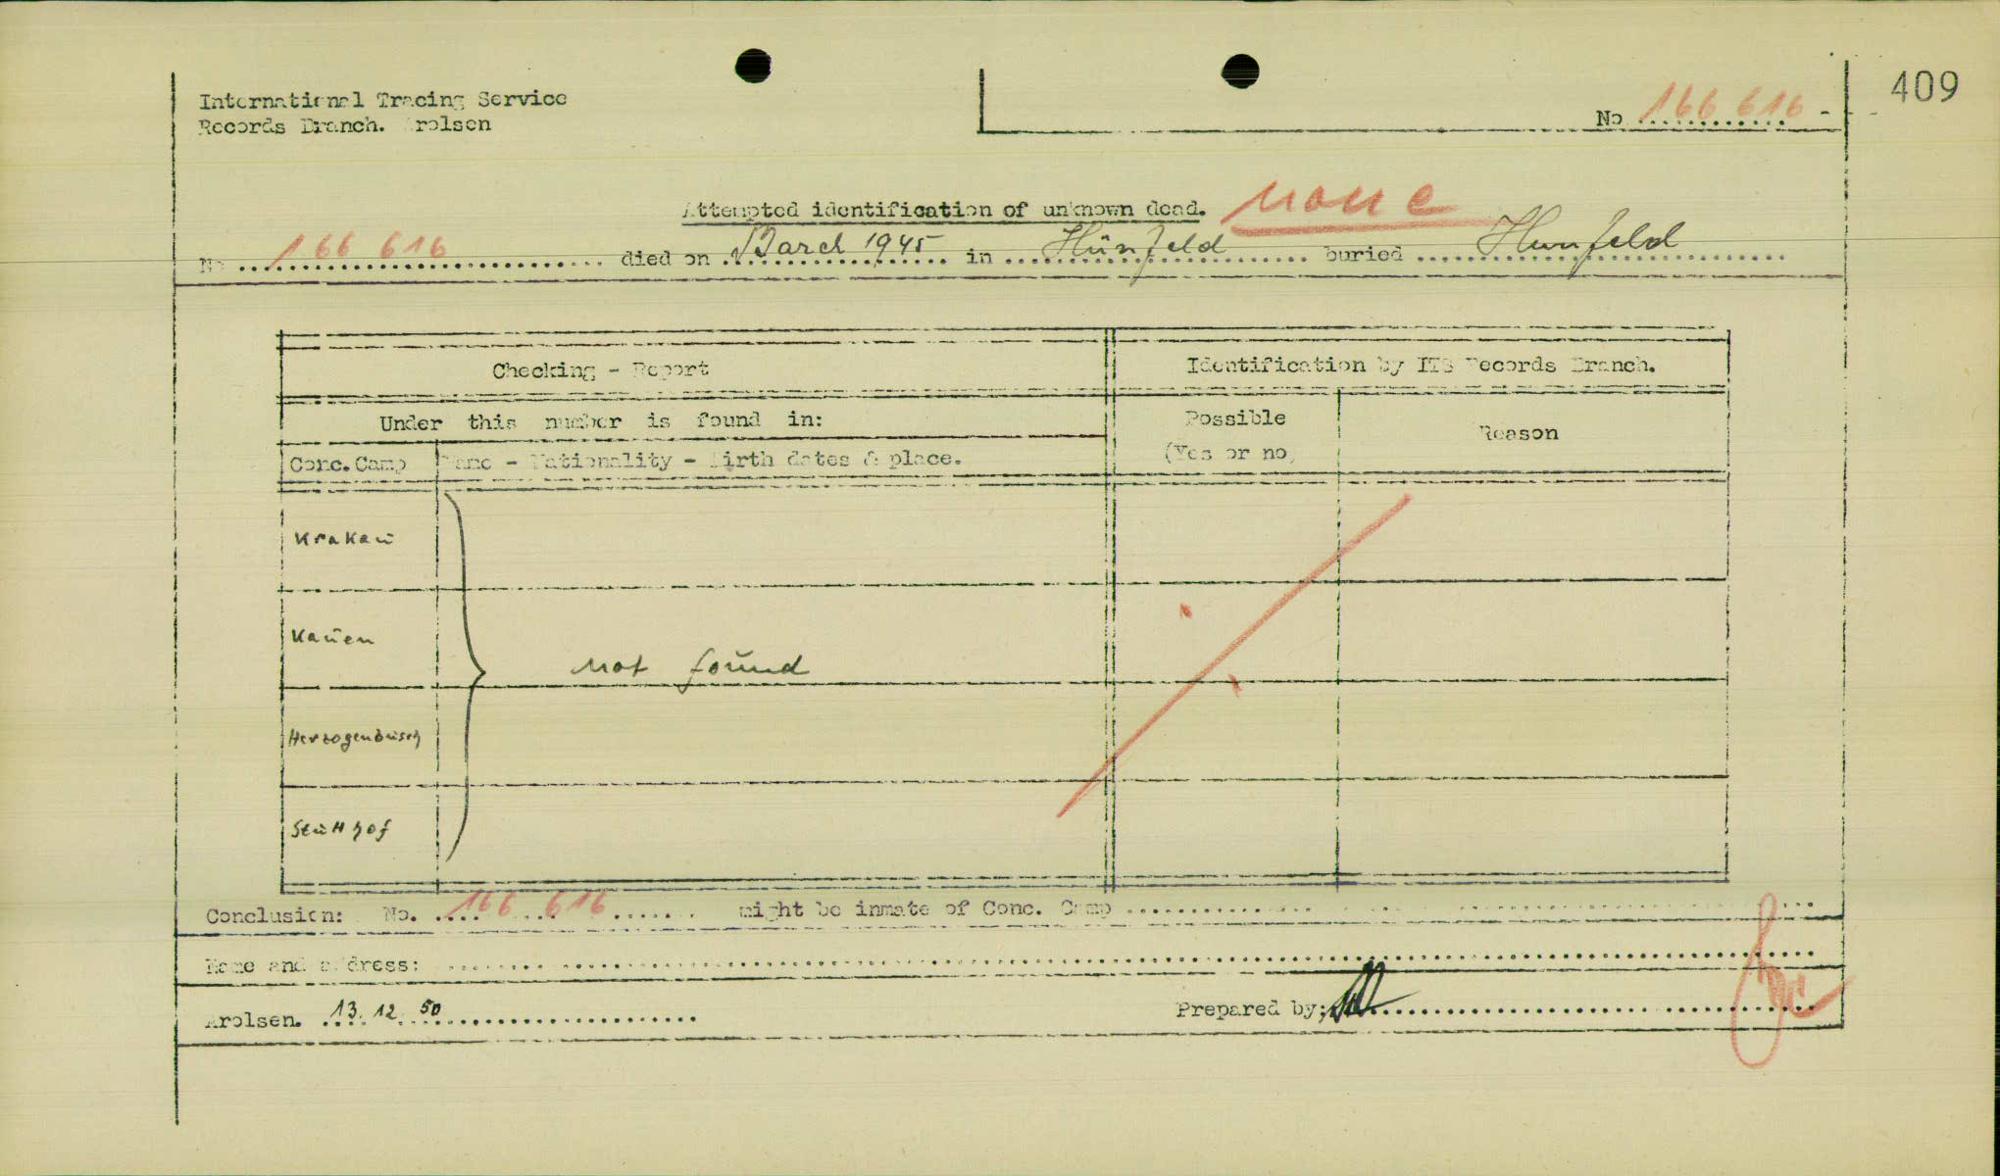 409
International Tracing Service
Records Branch. Arolsen
No 166 616 -
Attempted identification of unknown dead. none
No 166 616 died on March 1945 in Hünfeld buried Hünfeld
Checking - Report
Identification by ITS Records Branch.
Under this number is found in:
Possible
(Yes or no)
Reason
Conc. Camp
Name - Nationality - Birth dates & place.
Krakau
Kauen
not found
Herzogenbusch
Stutthof
Conclusion: No. 166 616 might be inmate of Conc. Camp
Name and address:
Arolsen. 13. 12. 50
Prepared by;